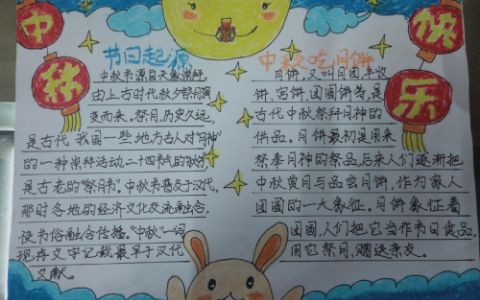 中
秋
快
乐
节日起源
中秋节源自天象崇拜,
由上古时代秋夕祭月演
变而来。祭月,历史久远,
是古代我国一些地方古人对“月神”
的一种崇拜活动,二十四节气的“秋分”
是古老的“祭月节”。中秋节普及于汉代,
那时各地的经济文化交流融合,
使节俗融合传播。“中秋”一词
现存文字记载最早于汉代
文献。
中秋吃月饼
月饼,又叫月团、丰收
饼、宫饼、团圆饼等,是
古代中秋祭拜月神的
供品。月饼最初是用来
祭奉月神的祭品,后来人们逐渐把
中秋赏月与品尝月饼,作为家人
团圆的一大象征。月饼象征着
团圆,人们把它当作节日食品,
用它祭月、赠送亲友。